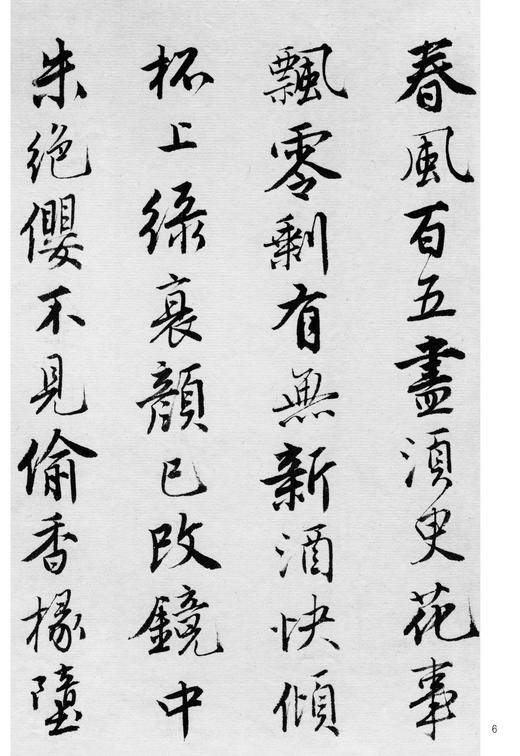 春風百五盡湏臾花事
飄零剩有無新酒快傾
杯上綠衰顔已改鏡中
朱絶纓不見偷香掾墮
6